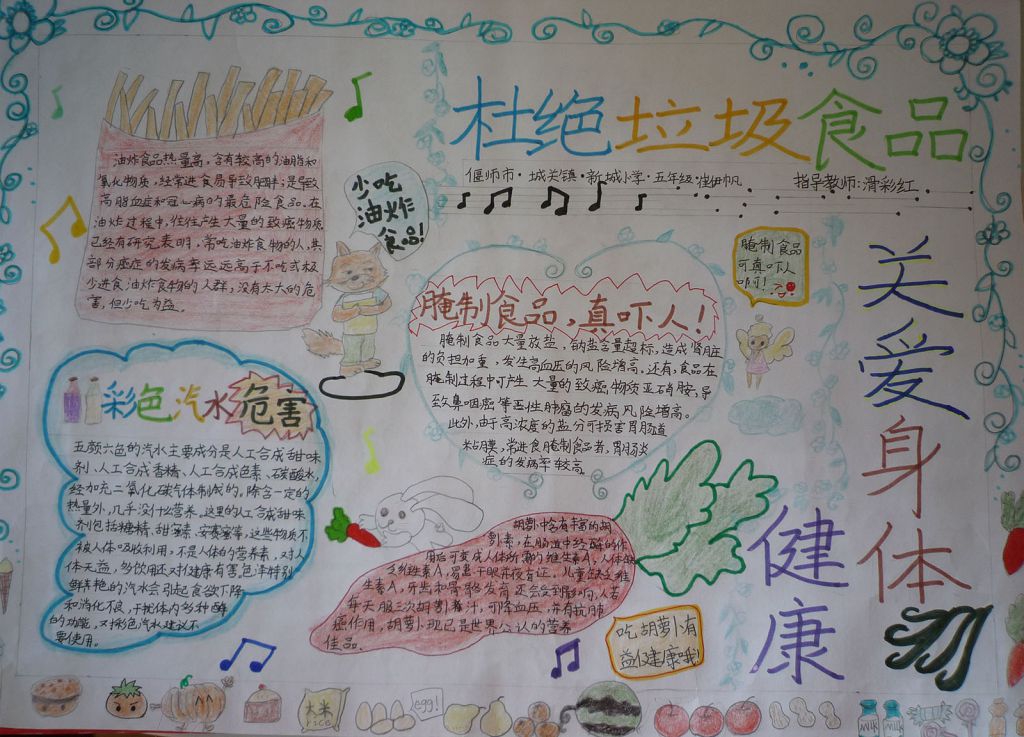 杜绝垃圾食品
偃师市·城关镇·新城小学·五年级·崔伊帆
指导教师:滑彩红
油炸食品热量高,含有较高的油脂和
氧化物质,经常进食易导致肥胖;是导致
高脂血症和冠心病的最危险食品。在
油炸过程中,往往产生大量的致癌物质
已经有研究表明,常吃油炸食物的人,其
部分癌症的发病率远远高于不吃或极
少进食油炸食物的人群,没有太大的危
害,但少吃为益。
少吃
油炸
食品!
腌制食品
可真吓人
啊!
腌制食品,真吓人!
腌制食品大量放盐,钠盐含量超标,造成肾脏
的负担加重,发生高血压的风险增高,还有,食品在
腌制过程中可产生大量的致癌物质亚硝胺,导
致鼻咽癌等恶性肿瘤的发病风险增高。
此外,由于高浓度的盐分可损害胃肠道
粘膜,常进食腌制食品者,胃肠炎
症的发病率较高。
彩色汽水危害
五颜六色的汽水主要成分是人工合成甜味
剂、人工合成香精、人工合成色素、碳酸水,
经加充二氧化碳气体制成的。除含一定的
热量外,几乎没什么营养。这里的人工合成甜味
剂包括糖精、甜蜜素、安赛蜜等,这些物质不
被人体吸收利用,不是人体的营养素,对人
体无益,多饮用还对健康有害。色泽特别
鲜艳的汽水会引起食欲下降
和消化不良,干扰体内多种酶
的功能,对彩色汽水建议不
要使用。
胡萝卜中含有丰富的胡
萝卜素,在肠道中经酶的作
用后可变成人体所需的维生素A,人体缺
乏维生素A,易患干眼病夜盲证。儿童缺乏维
生素A,牙齿和骨骼发育还会受到影响,人若
每天服三次胡萝卜汁,可降血压,并有抗肺
癌作用,胡萝卜现已是世界公认的营养
佳品。
吃胡萝卜有
益健康哦!
关爱身体
健康
大米
rice
egg!
milk
milk